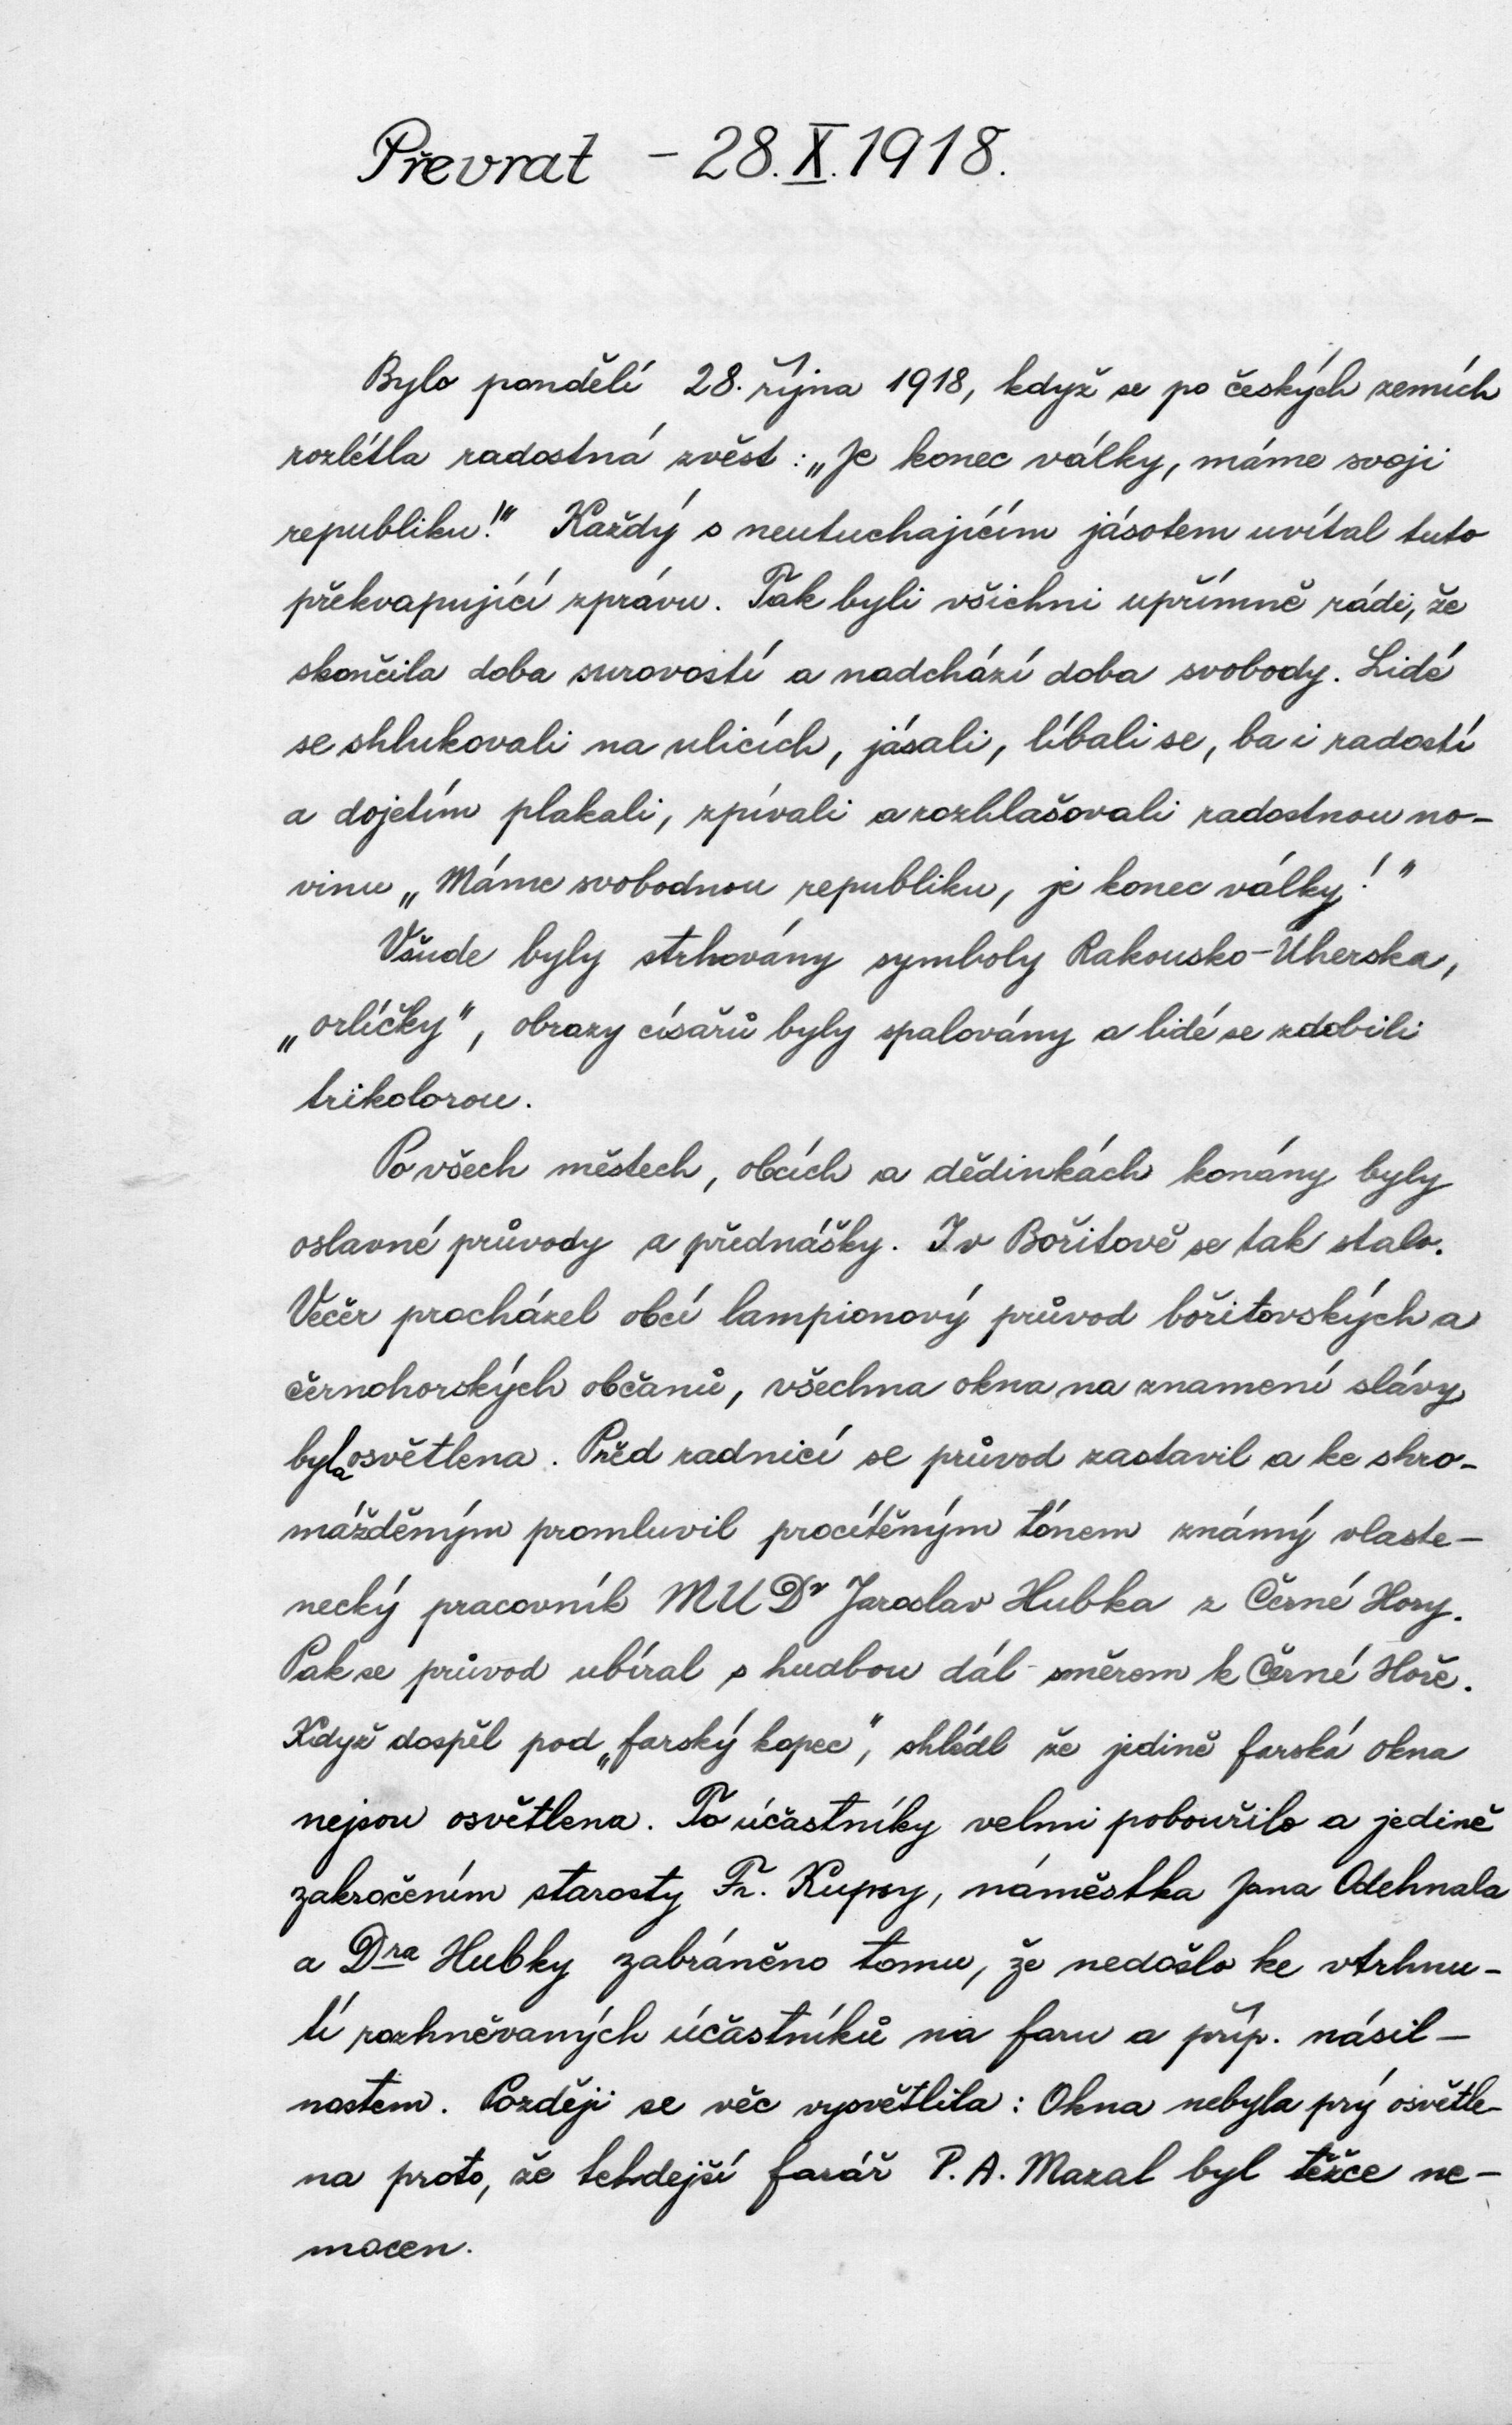 Převrat - 28. X. 1918.
Bylo pondělí 28. října 1918, když se po českých zemích
rozlétla radostná zvěst: „Je konec války, máme svoji
republiku!" Každý s neutuchajícím jásotem uvítal tuto
překvapující zprávu. Tak byli všichni upřímně rádi, že
skončila doba surovostí a nadchází doba svobody. Lidé
se shlukovali na ulicích, jásali, líbali se, ba i radostí
a dojetím plakali, zpívali a rozhlašovali radostnou no-
vinu „Máme svobodnou republiku, je konec války!"
Všude byly strhovány symboly Rakousko-Uherska,
„orlíčky", obrazy císařů byly spalovány a lidé se zdobili
trikolorou.
Po všech městech, obcích a dědinkách konány byly
oslavné průvody a přednášky. I v Bořitově se tak stalo.
Večer procházel obcí lampionový průvod bořitovských a
černohorských občanů, všechna okna na znamení slávy
byla osvětlena. Před radnicí se průvod zastavil a ke shro-
mážděným promluvil procítěným tónem známý vlaste-
necký pracovník MUDr Jaroslav Hubka z Černé Hory.
Pak se průvod ubíral s hudbou dál směrem k Černé Hoře.
Když dospěl pod „farský kopec", shlédl že jedině farská okna
nejsou osvětlena. To účastníky velmi pobouřilo a jedině
zakročením starosty Fr. Kupsy, náměstka Jana Odehnala
a Dra Hubky zabráněno tomu, že nedošlo ke vtrhnu-
tí rozhněvaných účastníků na faru a příp. násil-
nostem. Později se věc vysvětlila: Okna nebyla prý osvětle-
na proto, že tehdejší farář P. A. Mazal byl těžce ne-
mocen.